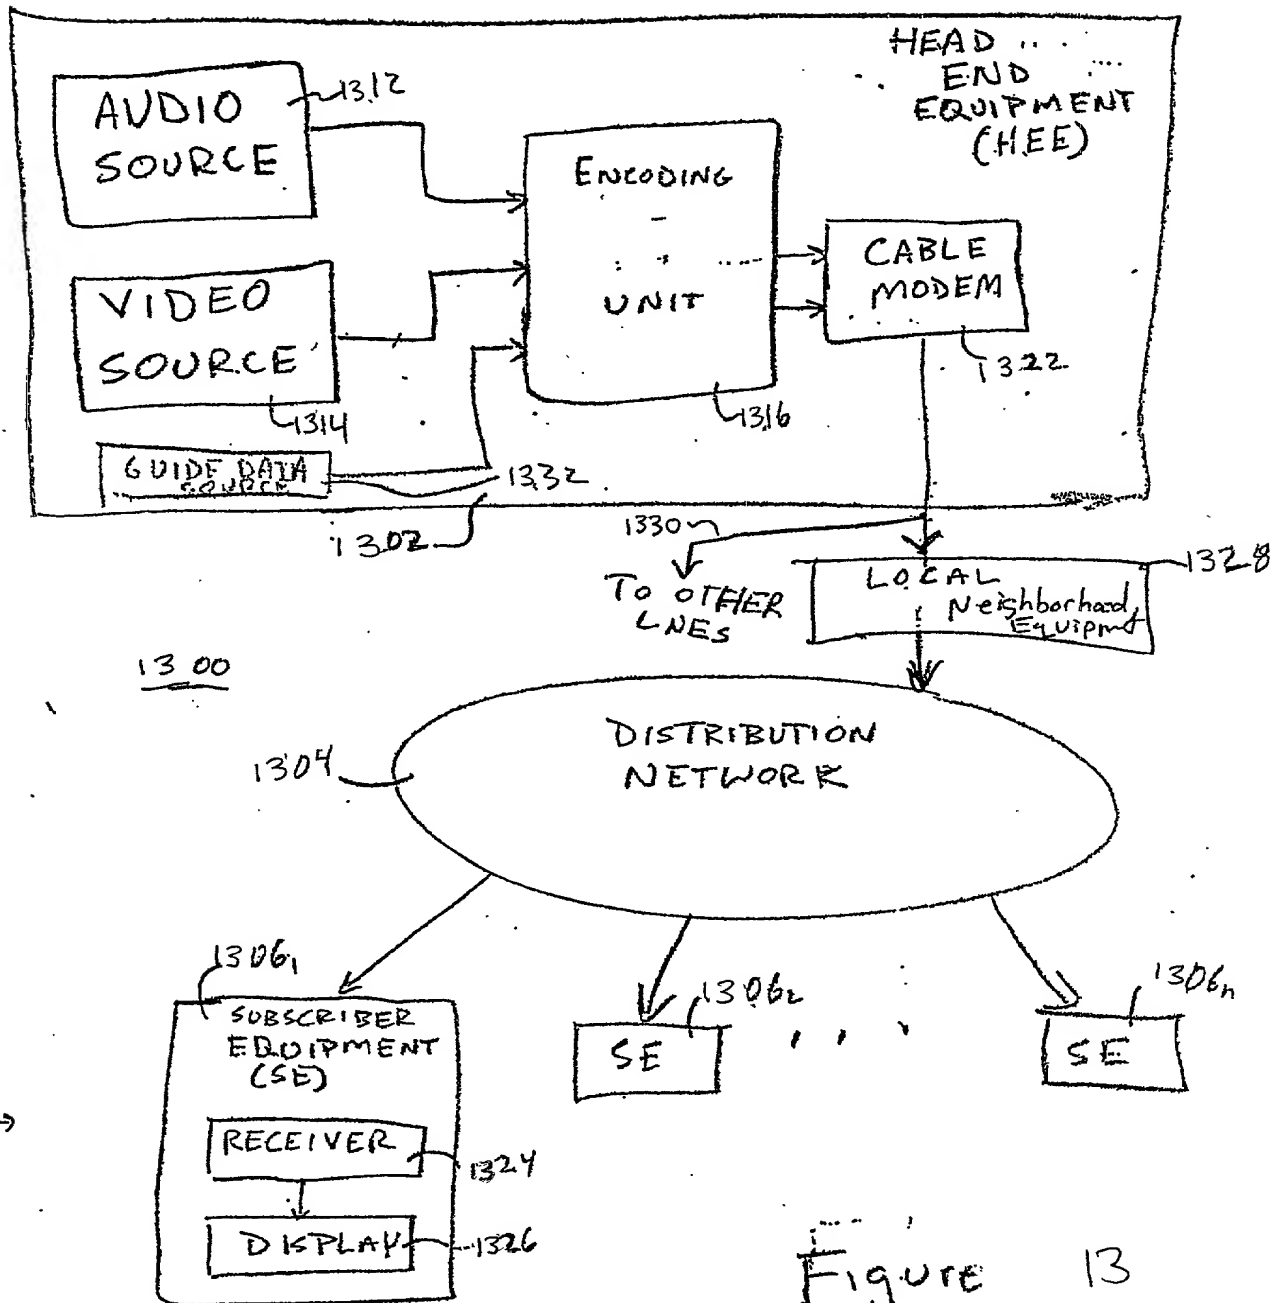 HEAD
END
EQUIPMENT
(HEE)
AUDIO
SOURCE
1312
ENCODING
UNIT
1316
CABLE
MODEM
1322
VIDEO
SOURCE
1314
GUIDE DATA
SOURCE
1332
1302
1330
TO OTHER
LNES
LOCAL
Neighborhood
Equipmt
1328
1300
1304
DISTRIBUTION
NETWORK
1306₁
SUBSCRIBER
EQUIPMENT
(SE)
RECEIVER
1324
DISPLAY
1326
1306₂
SE
1306ₙ
SE
Figure 13